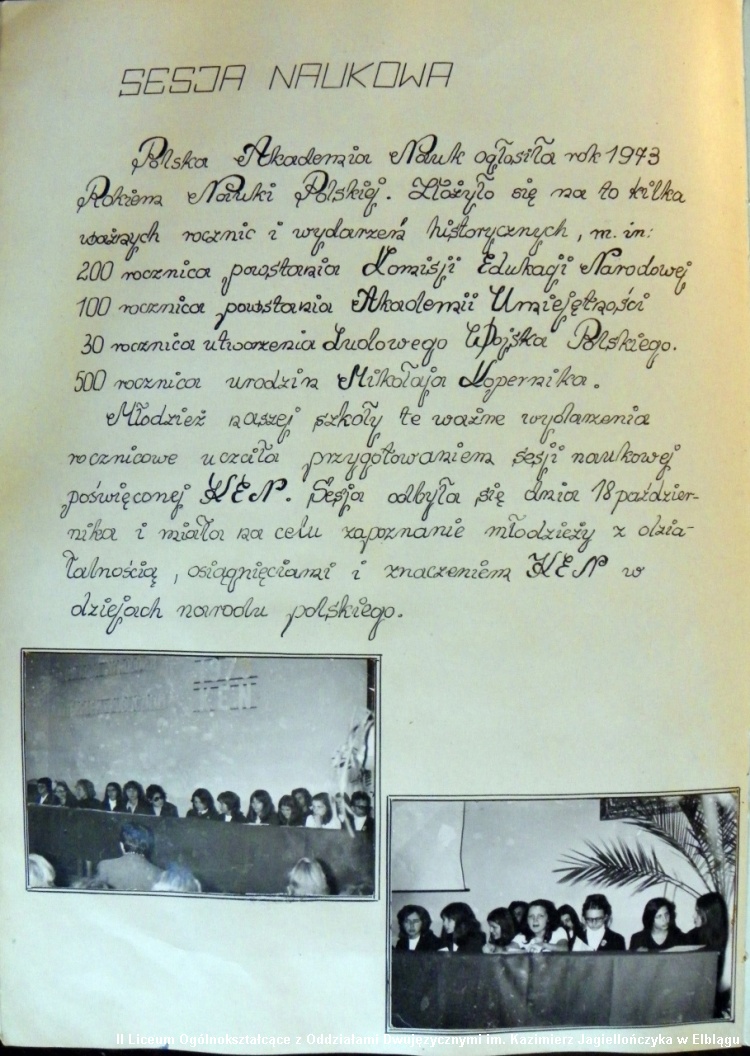 SESJA NAUKOWA
Polska Akademia Nauk ogłosiła rok 1973
Rokiem Nauki Polskiej. Złożyło się na to kilka
ważnych rocznic i wydarzeń historycznych, m.in:
200 rocznica powstania Komisji Edukacji Narodowej
100 rocznica powstania Akademii Umiejętności
30 rocznica utworzenia Ludowego Wojska Polskiego.
500 rocznica urodzin Mikołaja Kopernika.
Młodzież naszej szkoły te ważne wydarzenia
rocznicowe uczciła przygotowaniem sesji naukowej
poświęconej KEN. Sesja odbyła się dnia 18 paździer-
nika i miała na celu zapoznanie młodzieży z dzia-
łalnością, osiągnięciami i znaczeniem KEN w
dziejach narodu polskiego.
II Liceum Ogólnokształcące z Oddziałami Dwujęzycznymi im. Kazimierz Jagiellończyka w Elblągu